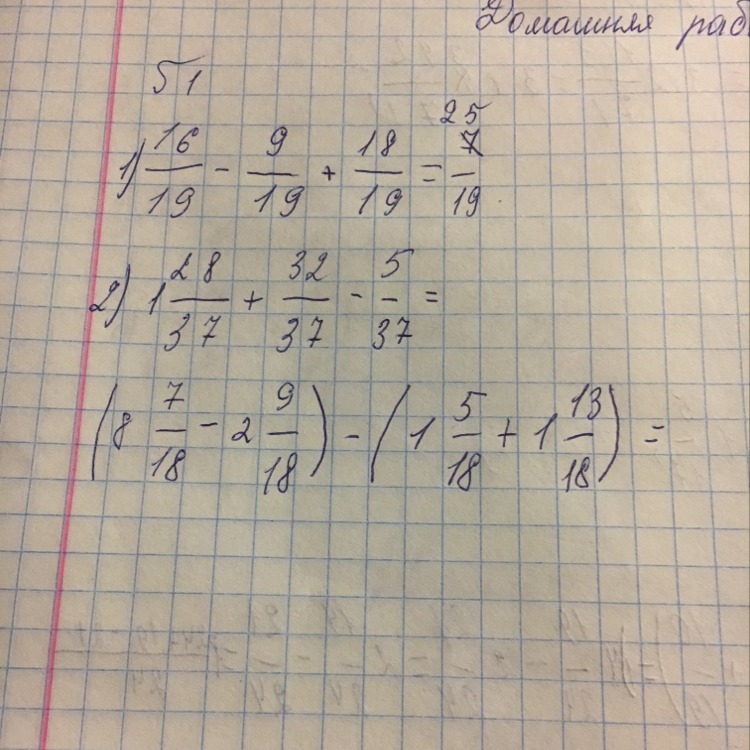 Домашняя раб
51
1) 16/19 - 9/19 + 18/19 = 25 7/19
2) 1 28/37 + 32/37 - 5/37 =
(8 7/18 - 2 9/18) - (1 5/18 + 1 13/18) =